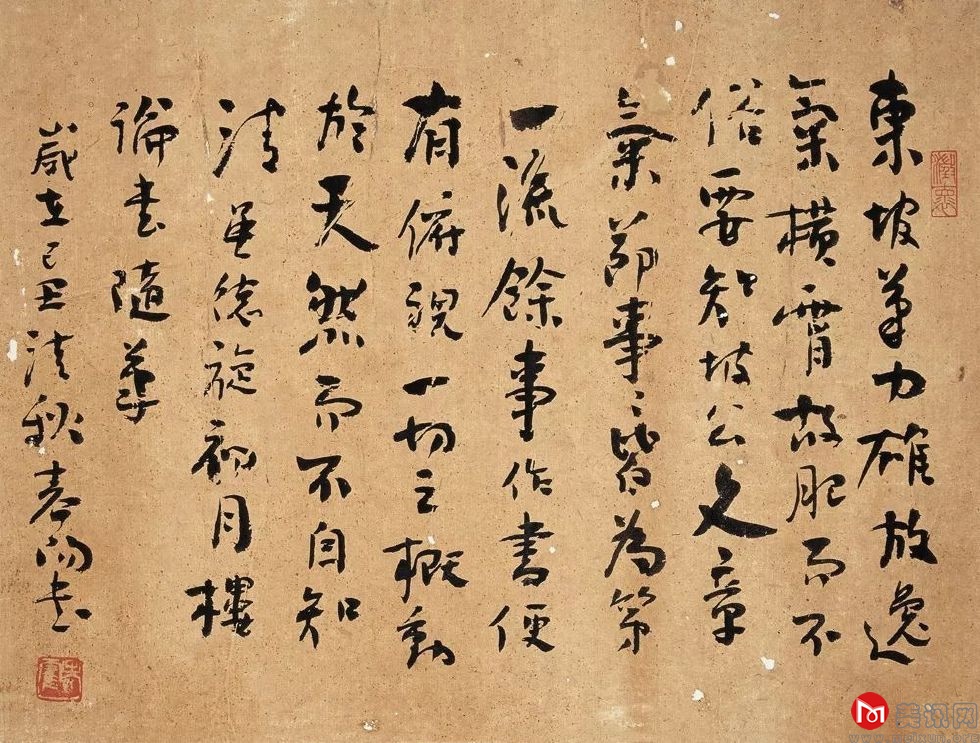 東坡筆力雄放逸
氣橫霄故肥而不
俗要知坡公文章
氣節事々皆為第
一流餘事作書便
有俯視一切之概動
於天然而不自知
清吳德旋初月樓
論書隨筆
歲在己丑清秋春陽書
美术网